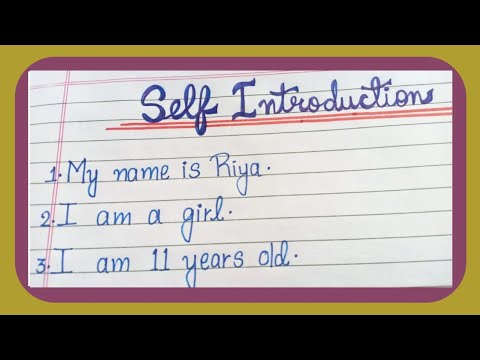 Self Introduction
1. My name is Riya.
2. I am a girl.
3. I am 11 years old.